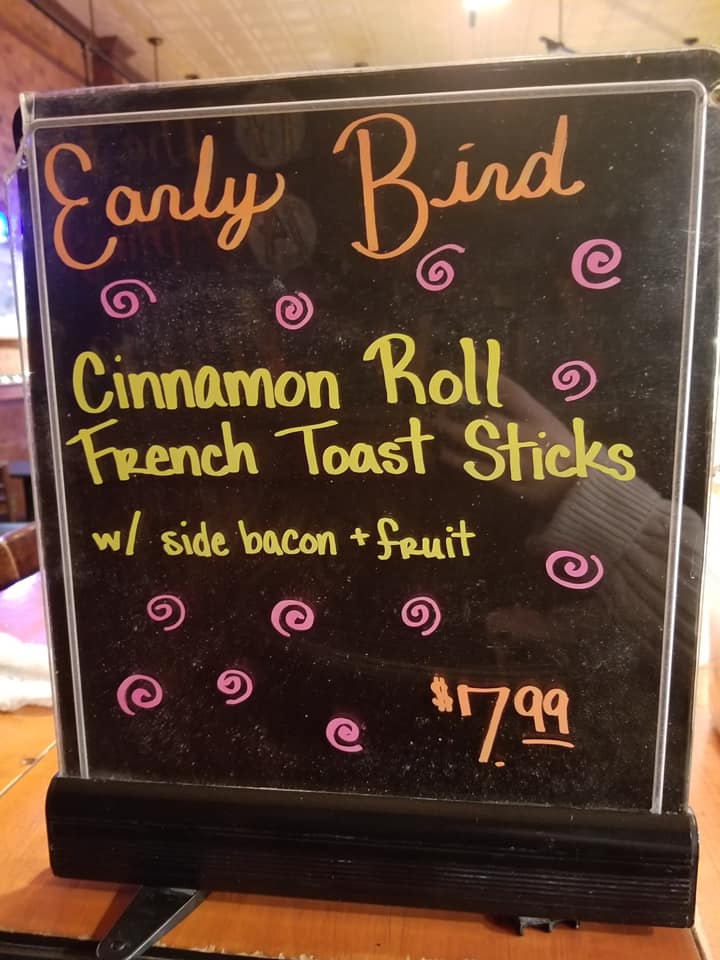 Early Bird
Cinnamon Roll
French Toast Sticks
w/ side bacon + fruit
$7.99